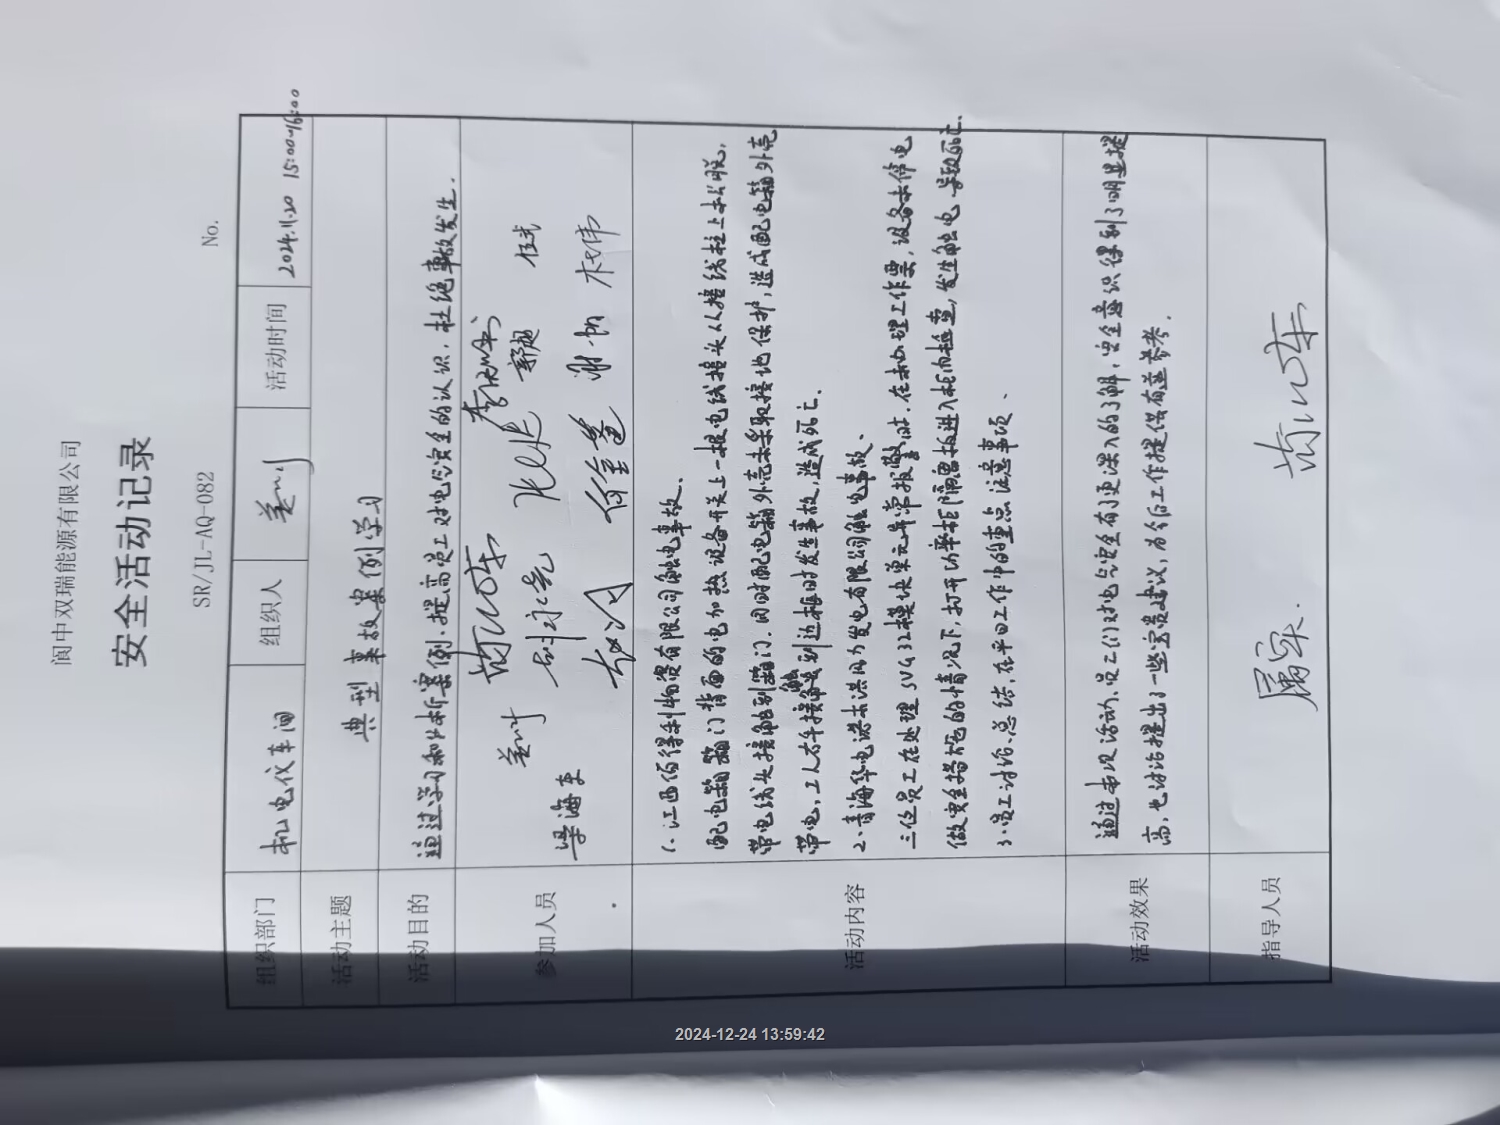 阆中双瑞能源有限公司
安全活动记录
SR/JL-AQ-082 No.
组织部门 机电仪车间 组织人 活动时间 2024.11.20 15:00-16:00
活动主题 典型事故案例学习
活动目的 通过学习和分析案例,提高员工对电气安全的认识,杜绝事故发生.
参加人员
郭超
刘永亮 谢帆 杜伟
梁海东
活动内容
1.江西佰得利物资有限公司触电事故.
配电箱箱门背面的电加热设备开关上一根电线接头从接线柱上松脱,
带电线头接触到箱门.同时配电箱外壳未采取接地保护,造成配电箱外壳
带电,工人右手接触到边框时发生事故,造成死亡.
2.青海华电诺木洪风力发电有限公司触电事故.
三位员工在处理SVG32模块单元异常报警时.在未办理工作票,设备未停电
做安全措施的情况下,打开功率柜隔离挡板进入柜内检查,发生触电,导致死亡.
3.员工讨论、总结,在平日工作中的重点注意事项、
活动效果
通过本次活动,员工们对电气安全有了更深入的了解,安全意识得到了明显提
高,也讨论提出了一些宝贵建议,为今后工作提供有益参考.
指导人员
2024-12-24 13:59:42